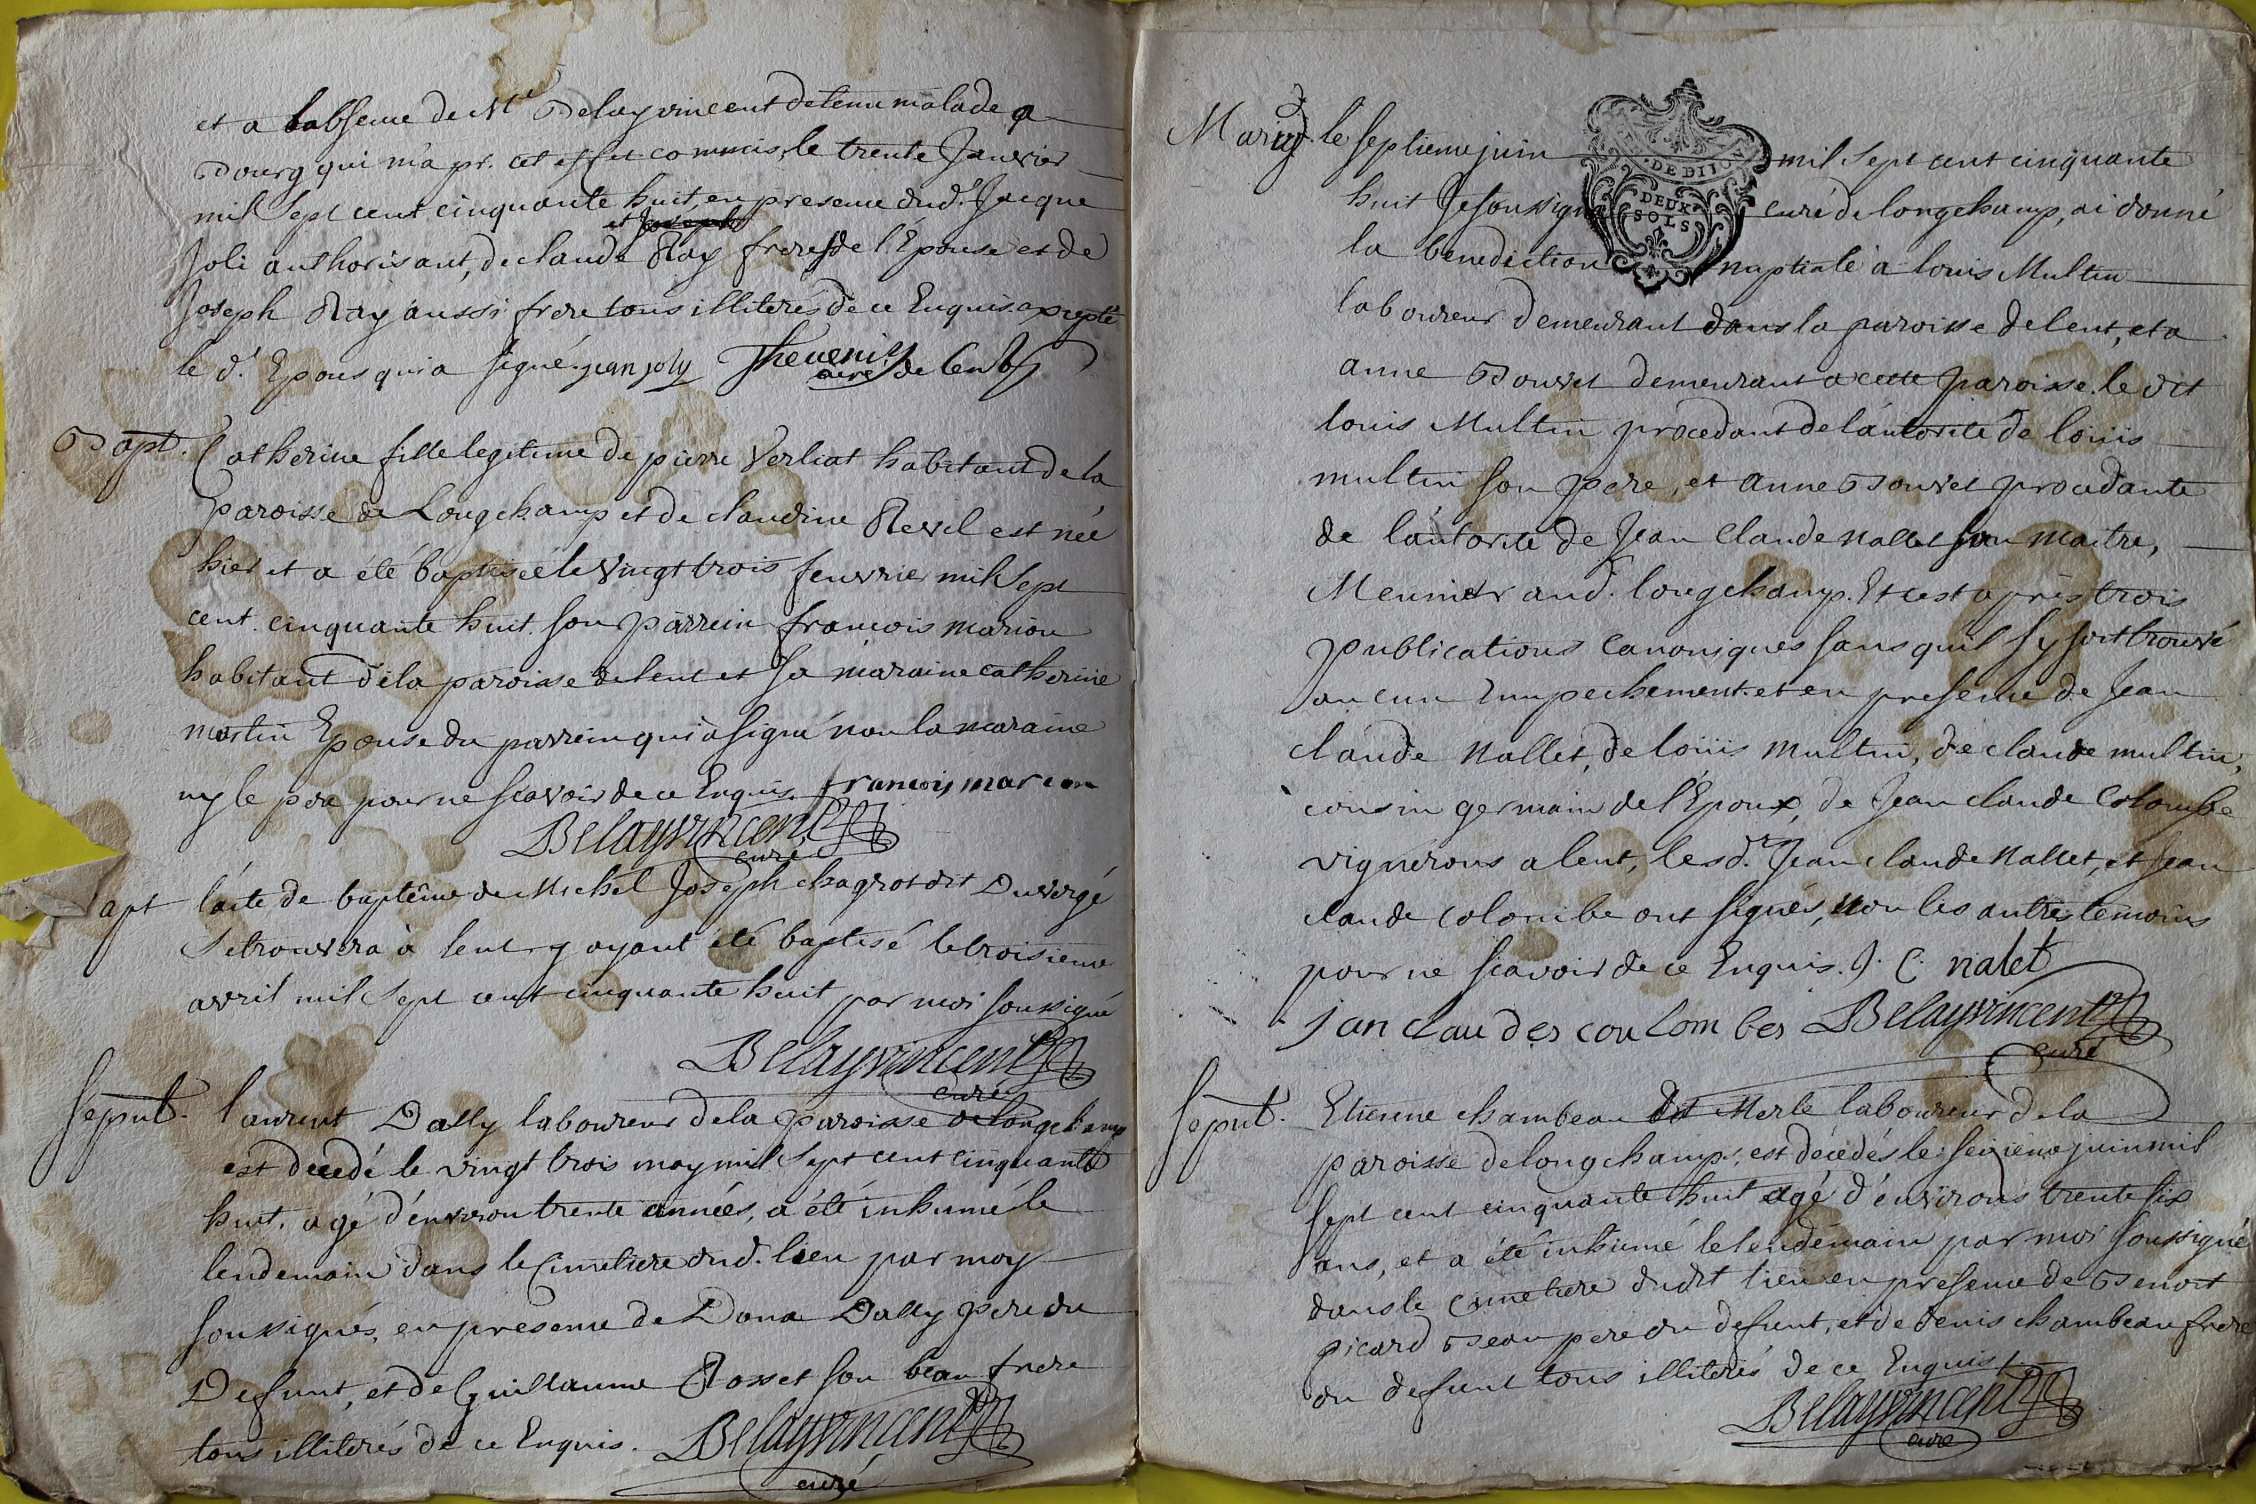 et a labsence de Mr Belayvincent detenu malade a
Bourg qui m'a pr. cet effet commis, le trente Janvier
mil sept cent cinquante huit, en presence dud. Jacque
et Joseph
Joli authorisant, de claude Ray freres de l'Epouse et de
Joseph Ray aussi frere tous illiterés de ce Enquis excepté
le d. Epous qui a signé. jean joly Thevenin
curé de lent
Bapt. Catherine fille legitime de pierre Verliat habitant de la
paroisse de Longchamp et de claudine Revel est née
hier et a été baptisée le vingt trois feuvrier mil sept
cent cinquante huit. son parrein françois marion
habitant de la paroisse de lent et sa maraine catherine
martin Epouse du parrein qui a signé non la maraine
ny le pere pour ne scavoir de ce Enquis. francois marion
Belayvincent
curé
apt l'acte de baptême de Michel Joseph chagrot dit Duvergé
se trouvera à lent y ayant été baptisé le troisieme
avril mil sept cent cinquante huit par moi soussigné
Belayvincent
curé
sepult. laurent Dally laboureur de la paroisse de longchamp
est decedé le vingt trois may mil sept cent cinquante
huit, agé d'environ trente années, a été inhumé le
lendemain dans le Cimetiere dud. lieu par moy
soussignés, en presence de Dona Dally pere du
Defunt, et de Guillaume Rosset son beau frere
tous illiterés de ce Enquis. Belayvincent
curé
Mariag. le septieme juin mil sept cent cinquante
DE DIJON
DEUX
SOLS
huit Je soussigné curé de longchamp, ai donné
la benediction nuptiale à louis Multin
laboureur demeurant dans la paroisse de lent, et a
anne Bouvet demeurant a cette paroisse. le dit
louis Multin procedant de l'autorité de loüis
multin son pere, et anne Bouvet procedante
de l'autorité de Jean Claude Nallet son maitre,
Meunier aud. longchamp. Et c'est après trois
publications canoniques sans qu'il s'y soit trouvé
aucun Empechement. et en presence de Jean
claude Nallet, de loüis multin, de claude multin,
cousin germain de l'Epoux, de Jean claude Colombe
vignerons a lent, les d. Jean claude Nallet, et Jean
claude colombe ont signés, non les autres temoins
pour ne scavoir de ce Enquis. J. C. nalet
jan clau des coulombes Belayvincent
curé
sepult. Etienne chambeau dit Merle laboureur de la
paroisse de longchamp, est décédés le seizieme juin mil
sept cent cinquante huit agé d'environs trente six
ans, et a été inhumé le lendemain par moi soussigné
dans le cimetiere dudit lieu en presence de Benoit
picard Beau pere du defunt, et de denis chambeau frere
du defunt tous illiterés de ce Enquis.
Belayvincent
curé